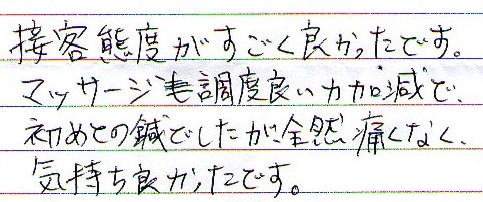 接客態度がすごく良かったです。
マッサージも調度良い力加減で、
初めての鍼でしたが、全然痛くなく、
気持ち良かったです。